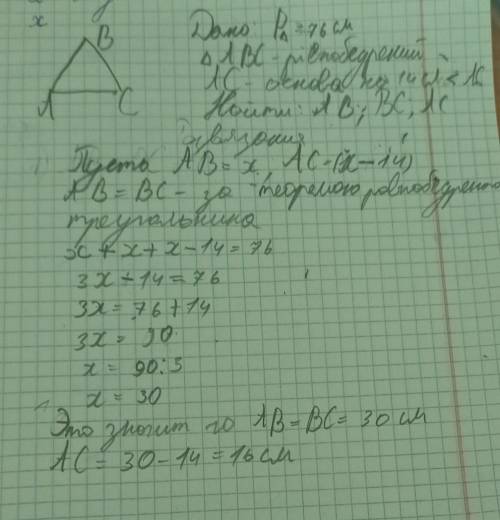 x
B
A
C
Дано: P△=76 см
△ ABC - рівнобедрений
AC - основа на 14 см <
Найти: AB; BC; AC
Пусть AB=x, AC-(x-14)
AB=BC - за теоремою рівнобедренно
треугольника
x+x+x-14=76
3x-14=76
3x=76+14
3x=90
x=90:3
x=30
Это значит що AB=BC=30 см
AC=30-14=16 см